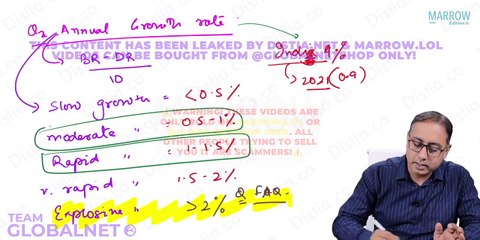 Q₂ Annual Growth rate
MARROW
Edition 6
THIS CONTENT HAS BEEN LEAKED BY DISTIA.NET & MARROW.LOL
VIDEOS CAN BE BOUGHT FROM @GLOBALNETSHOP ONLY!
BR - DR
10
India 1%
2021 (0.9)
Slow growth = <0.5%
WARNING! THESE VIDEOS ARE
moderate " = 0.5 - 1%
OTHER PEOPLE TRYING TO SELL
Rapid " 1 - 1.5%
YOU IT ARE SCAMMERS!
v. rapid " 1.5 - 2%
Explosive " >2% Q = FAQ.
TEAM
GLOBALNET